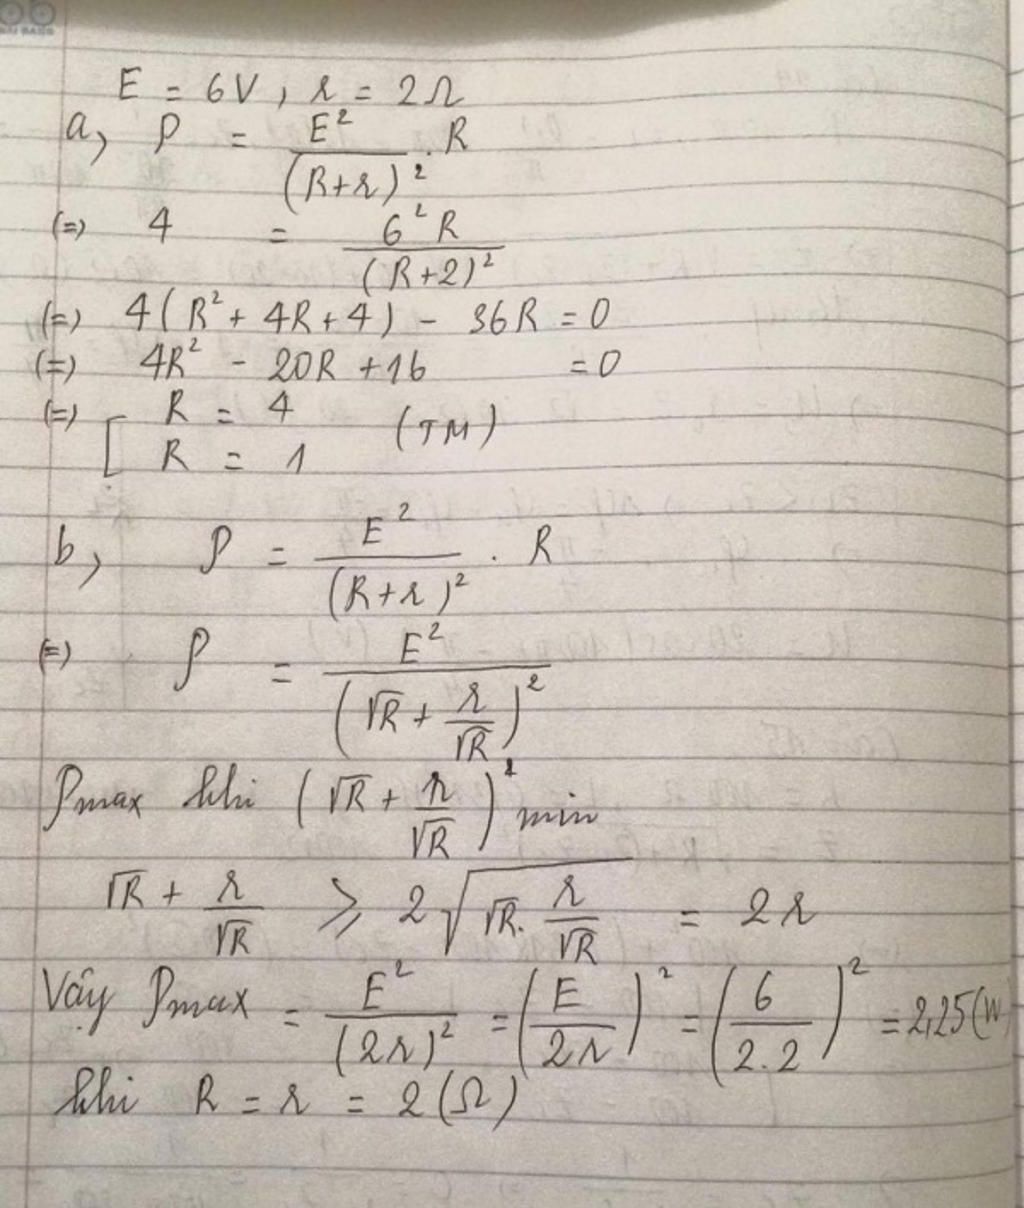 E = 6V, r = 2Ω
a, P = E²/(R+r)² . R
(=) 4 = 6²R/(R+2)²
(=) 4(R² + 4R + 4) - 36R = 0
(=) 4R² - 20R + 16 = 0
(=) [ R = 4
R = 1 (TM)
b, P = E²/(R+r)² . R
(=) P = E²/(√R + r/√R)²
Pmax khi (√R + r/√R)² min
√R + r/√R ⩾ 2√(√R . r/√R) = 2r
Vây Pmax = E²/(2r)² = (E/2r)² = (6/2.2)² = 2,25(W)
khi R = r = 2(Ω)